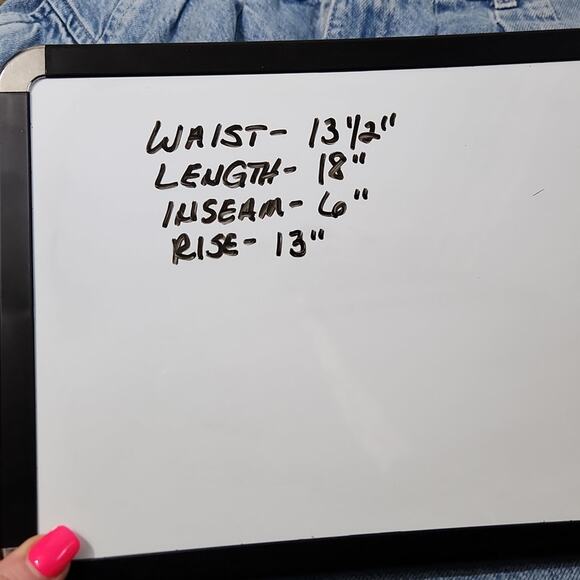 WAIST- 13 1/2"
LENGTH- 18"
INSEAM- 6"
RISE- 13"